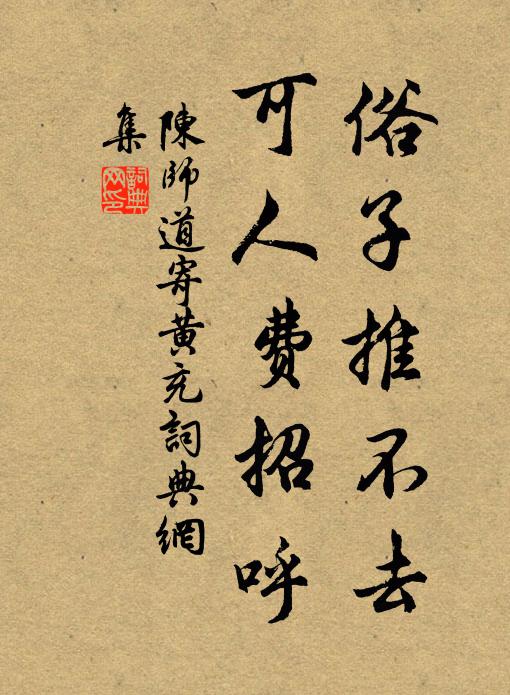 俗子推不去
可人费招呼
陳師道寄黄充詞典網
集
詞典
网印